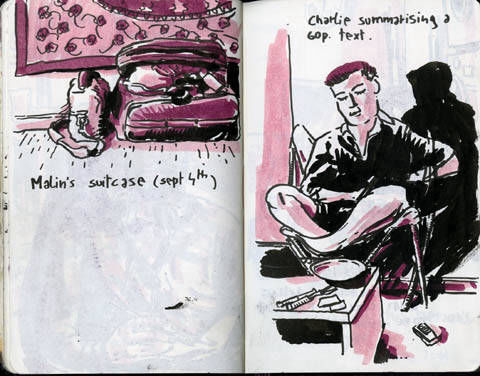 Malin's suitcase (sept 4th)
Charlie summarising a
60p. text.